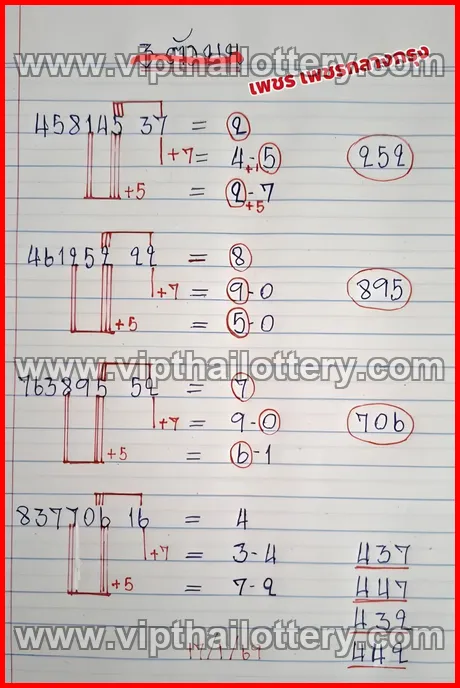 www.vipthailottery.com
3 ตัวบน
เพชร เพชรกลางกรุง
458145 37 = 2
+7 = 4-5 252
+1
+5 = 2-7
+5
www.vipthailottery.com
461252 22 = 8
+7 = 9-0 895
+5 = 5-0
www.vipthailottery.com
763895 52 = 7
+7 = 9-0 706
+5 = 6-1
837706 16 = 4
+7 = 3-4 437
+5 = 7-2 447
432
www.vipthailottery.com
442